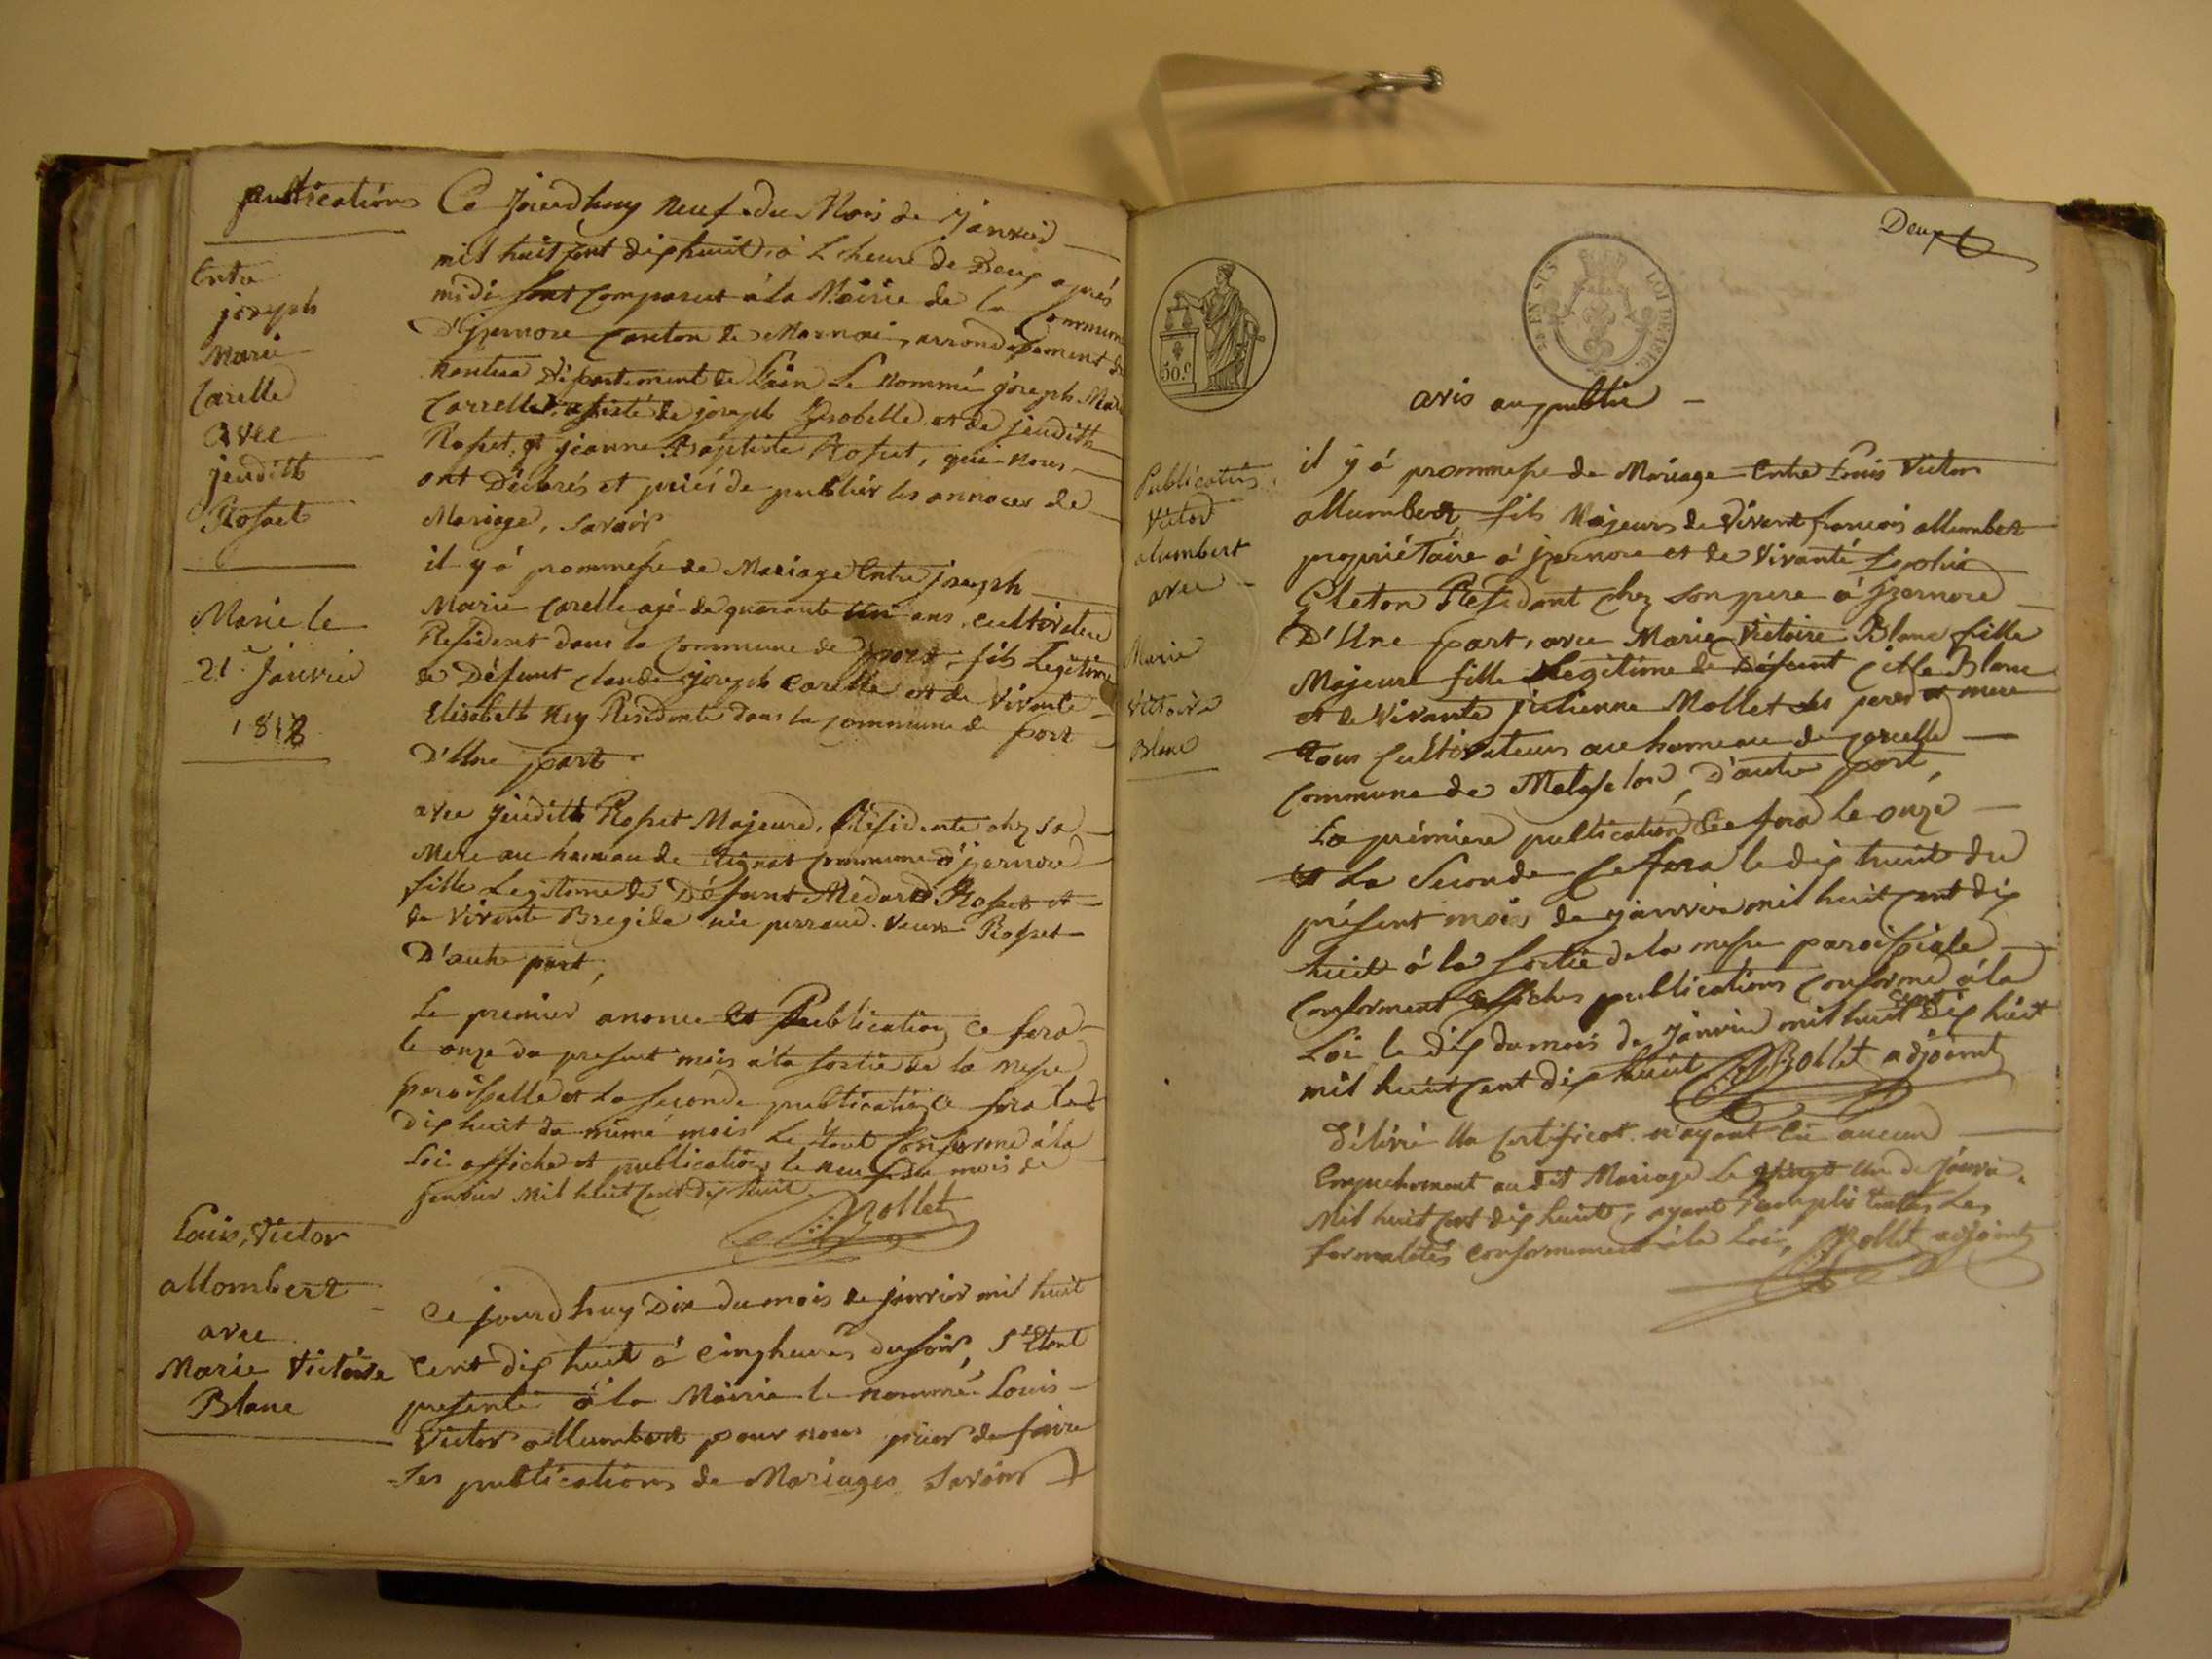 publications
Entre
joseph
Marie
Carelle
avec
jeudith
Rosset
Marié le
21 Janvier
1818
Ce jourdhuy neuf du Mois de Janvier
mil huit cent dix huit à L'heure de Deux après
midi sont comparut à la Mairie de la Commune
D'jzernore Canton de arrondissement de
nantua Département de L'ain Le nommé joseph Marie
Carrelle, assisté de joseph et de jeudith
Rosset, et jeanne Baptiste Rosset, qui nous
ont Déclarés et priés de publiér les annoces de
Mariage, savoir
il y á prommesse de Mariage Entre joseph
Marie Carelle agé de quarante un ans, cultivateur
Resident dans la Commune de port, fils Legitime
de Défunt claude joseph Carelle et de Vivante
Elisabeth Rey Residente dans la commune de port
D'Une part
avec Jeudith Rosset Majeure, Résidente chez sa
Mere au hameau de Commune d'jzernore
fille Legitime de Défunt Médard Rosset et
de Vivente Bregide née perraud veuve Rosset
D'autre part,
Le premier anonce et Publication ce fera
le onze du present mois à la sortie de la messe
paroissialle et La seconde publication ce fera le
dix huit du mémé mois Le tout Conforme à la
Loi affiche et publication le neuf du mois de
janvier Mil huit cent dix huit.
Mollet
Louis, Victor
allombert
avec
Marie Victoire
Blanc
Ce jourdhuy Dix du mois de janvier mil huit
Cent dix huit à Cinq heures du soir, S'Etant
presenté à la Mairie le nommé Louis
Victor allumbert pour nous prier de faire
ses publications de Mariages Savoir
Deux
LOI DE 1816
EN SUS
50 c
avis au public
Publications
Victor
alumbert
avec
Marie
Victoire
Blanc
il y á prommesse de Mariage Entre Louis Victor
allumbert, fils Majeurs de Vivent francois allumbert
propriétaire à jzernore et de Vivante
Gleton Residant chez son pere à jzernore
D'Une part, avec Marie Victoire Blanc fille
Majeure fille Legitime de Défunt Blanc
et de Vivante julienne Mollet ses peres et mere
tous Cultivateurs au hameau de
Commune de D'autre part,
La prémiere publication Ce fera le onze
et La Seconde Ce fera le dix huit du
présent mois de janvier mil huit cent dix
huit á la Sortie de la messe paroissiale
Conforment affiches publications conforme à la
Loi le dix du mois de Janvier mil huit cent Dix huit
mil huit cent dix huit Mollet adjoint
Délivré Un Certificat n'ayant Eu aucun
Empechement audit Mariage Le Vingt un de Janvier
Mil huit cent dix huit, ayant Remplis toutes Les
formalités conformement à la Loi, Mollet adjoint